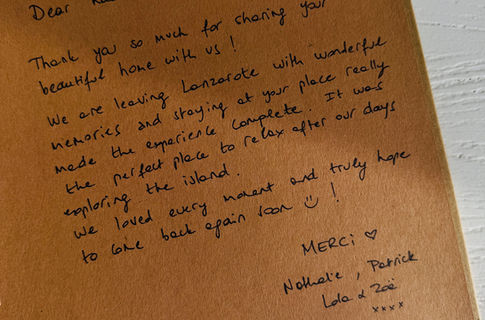 Dear
Thank you so much for sharing your
beautiful home with us !
We are leaving Lanzarote with wonderful
memories and staying at your place really
made the experience complete. It was
the perfect place to relax after our days
exploring the island.
We loved every moment and truly hope
to come back again soon ☺ !
MERCi ♡
Nathalie, Patrick
Lola & Zoë
xxxx